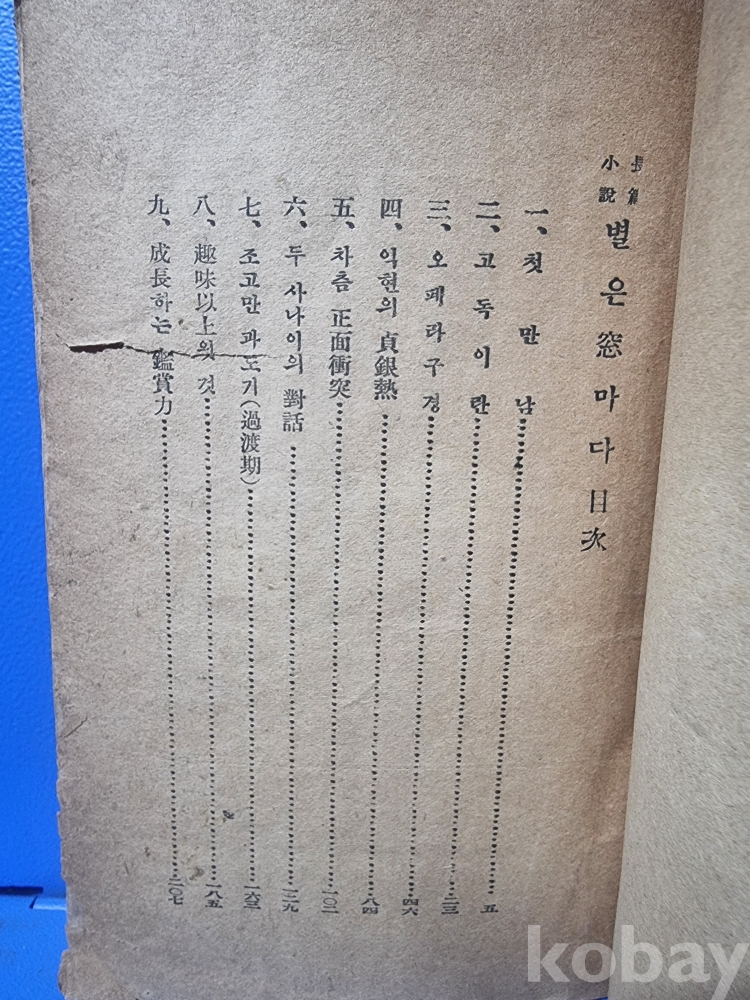 長篇小說 별은 窓마다 目次
一、첫 만 남 五
二、고 독 이 란 二三
三、오 페 라 구 경 四六
四、억현의 貞銀熱 八四
五、차츰 正面衝突 一〇二
六、두 사나이의 對話 一二九
七、조고만 과도기(過渡期) 一六三
八、趣味以上의 것 一八五
九、成長하는 鑑賞力 二〇七
kobay